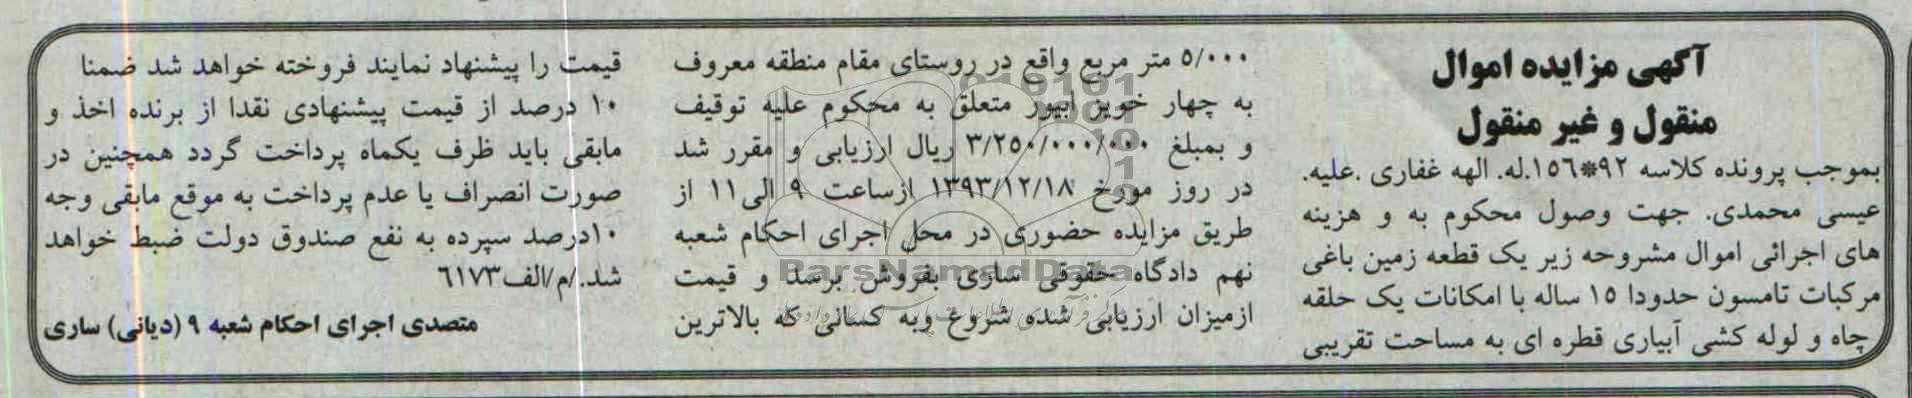 آگهی مزایده اموال
منقول و غیر منقول
بموجب پرونده کلاسه ۹۲*۱۵٦.له. الهه غفاری .علیه.
عیسی محمدی. جهت وصول محکوم به و هزینه
های اجرائی اموال مشروحه زیر یک قطعه زمین باغی
مرکبات تامسون حدودا ۱۵ ساله با امکانات یک حلقه
چاه و لوله کشی آبیاری قطره ای به مساحت تقریبی
۵/۰۰۰ متر مربع واقع در روستای مقام منطقه معروف
به چهار خویز آبپور متعلق به محکوم علیه توقیف
و بمبلغ ۳/۲۵۰/۰۰۰/۰۰۰ ریال ارزیابی و مقرر شد
در روز مورخ ۱۳۹۳/۱۲/۱۸ ازساعت ۹ الی ۱۱ از
طریق مزایده حضوری در محل اجرای احکام شعبه
نهم دادگاه حقوقی ساری بفروش برسد و قیمت
ازمیزان ارزیابی شده شروع وبه کسانی که بالاترین
قیمت را پیشنهاد نمایند فروخته خواهد شد ضمنا
۱۰ درصد از قیمت پیشنهادی نقدا از برنده اخذ و
مابقی باید ظرف یکماه پرداخت گردد همچنین در
صورت انصراف یا عدم پرداخت به موقع مابقی وجه
۱۰درصد سپرده به نفع صندوق دولت ضبط خواهد
شد./م/الف٦۱۷۳
متصدی اجرای احکام شعبه ۹ (دیانی) ساری
ParsNamadData